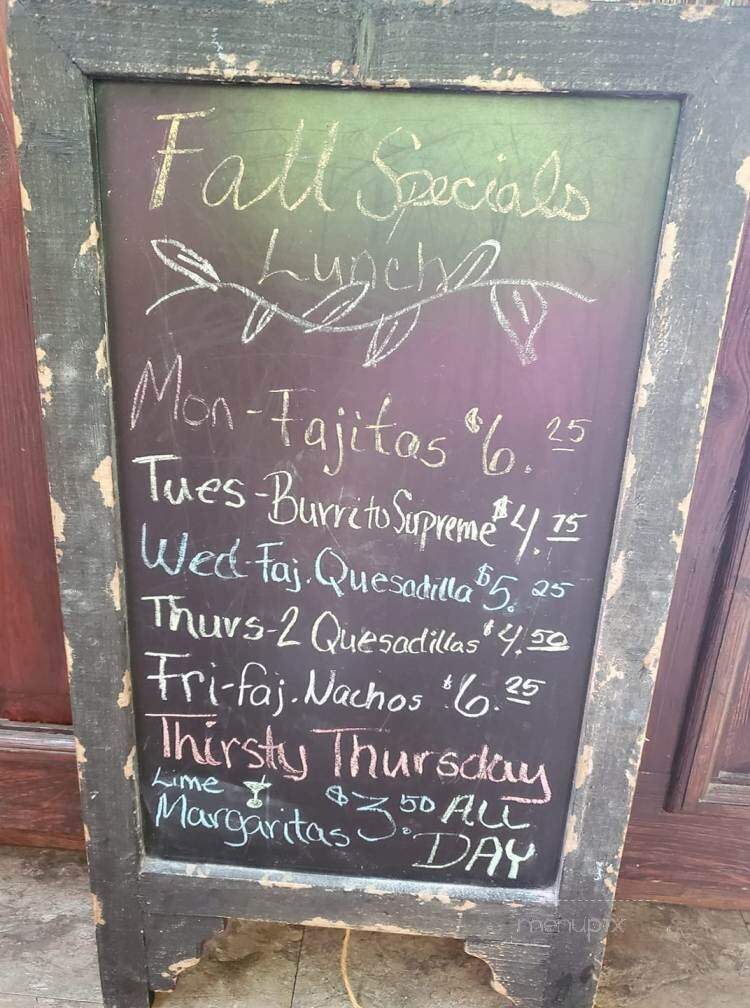 Fall Specials
Lunch
Mon - Fajitas $6.25
Tues - Burrito Supreme $4.75
Wed - Faj. Quesadilla $5.25
Thurs - 2 Quesadillas $4.50
Fri - faj. Nachos $6.25
Thirsty Thursday
Lime
Margaritas $3.50 ALL
DAY
menupix